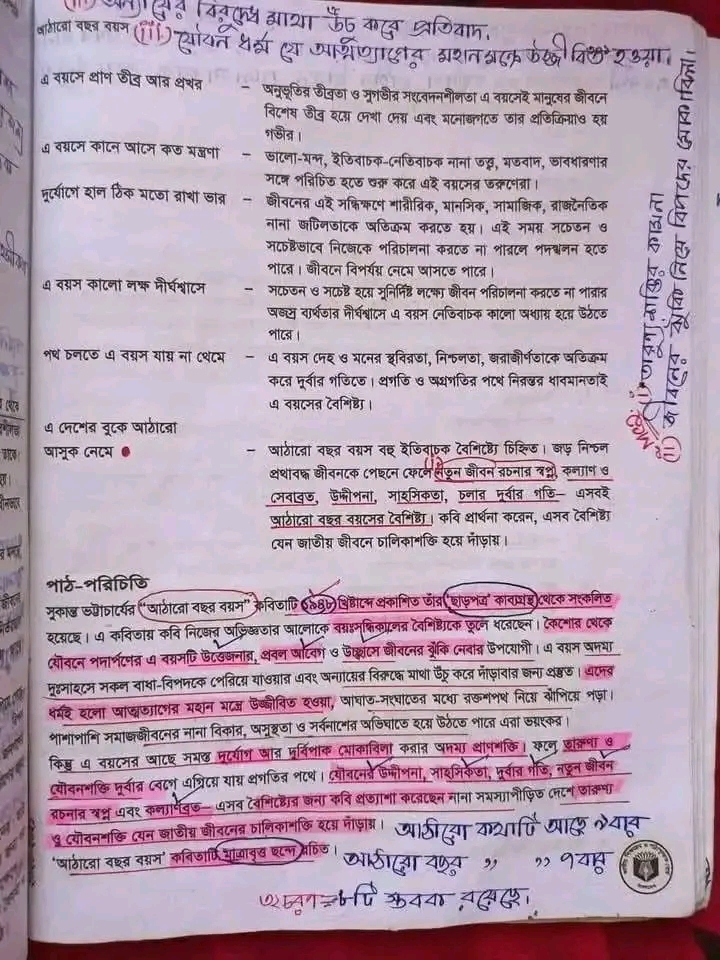 অন্যায়ের বিরুদ্ধে মাথা উঁচু করে প্রতিবাদ.
আঠারো বছর বয়স (iii) যৌবন ধর্ম যে আত্মত্যাগের মহান মন্ত্রে উজ্জীবিত হওয়া।
এ বয়সে প্রাণ তীব্র আর প্রখর – অনুভূতির তীব্রতা ও সুগভীর সংবেদনশীলতা এ বয়সেই মানুষের জীবনে
বিশেষ তীব্র হয়ে দেখা দেয় এবং মনোজগতে তার প্রতিক্রিয়াও হয়
গভীর।
এ বয়সে কানে আসে কত মন্ত্রণা – ভালো-মন্দ, ইতিবাচক-নেতিবাচক নানা তত্ত্ব, মতবাদ, ভাবধারণার
সঙ্গে পরিচিত হতে শুরু করে এই বয়সের তরুণেরা।
দুর্যোগে হাল ঠিক মতো রাখা ভার – জীবনের এই সন্ধিক্ষণে শারীরিক, মানসিক, সামাজিক, রাজনৈতিক
নানা জটিলতাকে অতিক্রম করতে হয়। এই সময় সচেতন ও
সচেষ্টভাবে নিজেকে পরিচালনা করতে না পারলে পদস্খলন হতে
পারে। জীবনে বিপর্যয় নেমে আসতে পারে।
এ বয়স কালো লক্ষ দীর্ঘশ্বাসে – সচেতন ও সচেষ্ট হয়ে সুনির্দিষ্ট লক্ষ্যে জীবন পরিচালনা করতে না পারার
অজস্র ব্যর্থতার দীর্ঘশ্বাসে এ বয়স নেতিবাচক কালো অধ্যায় হয়ে উঠতে
পারে।
পথ চলতে এ বয়স যায় না থেমে – এ বয়স দেহ ও মনের স্থবিরতা, নিশ্চলতা, জরাজীর্ণতাকে অতিক্রম
করে দুর্বার গতিতে। প্রগতি ও অগ্রগতির পথে নিরন্তর ধাবমানতাই
এ বয়সের বৈশিষ্ট্য।
এ দেশের বুকে আঠারো
আসুক নেমে – আঠারো বছর বয়স বহু ইতিবাচক বৈশিষ্ট্যে চিহ্নিত। জড় নিশ্চল
প্রথাবদ্ধ জীবনকে পেছনে ফেলে নতুন জীবন রচনার স্বপ্ন, কল্যাণ ও
সেবাব্রত, উদ্দীপনা, সাহসিকতা, চলার দুর্বার গতি– এসবই
আঠারো বছর বয়সের বৈশিষ্ট্য। কবি প্রার্থনা করেন, এসব বৈশিষ্ট্য
যেন জাতীয় জীবনে চালিকাশক্তি হয়ে দাঁড়ায়।
MCQ (i) তারুণ্য শক্তির কামনা
(ii) জীবনের ঝুঁকি নিয়ে বিপদের মোকাবিলা।
পাঠ-পরিচিতি
সুকান্ত ভট্টাচার্যের “আঠারো বছর বয়স” কবিতাটি ১৯৪৮ খ্রিষ্টাব্দে প্রকাশিত তাঁর ‘ছাড়পত্র’ কাব্যগ্রন্থ থেকে সংকলিত
হয়েছে। এ কবিতায় কবি নিজের অভিজ্ঞতার আলোকে বয়ঃসন্ধিকালের বৈশিষ্ট্যকে তুলে ধরেছেন। কৈশোর থেকে
যৌবনে পদার্পণের এ বয়সটি উত্তেজনার, প্রবল আবেগ ও উচ্ছ্বাসে জীবনের ঝুঁকি নেবার উপযোগী। এ বয়স অদম্য
দুঃসাহসে সকল বাধা-বিপদকে পেরিয়ে যাওয়ার এবং অন্যায়ের বিরুদ্ধে মাথা উঁচু করে দাঁড়াবার জন্য প্রস্তুত। এদের
ধর্মই হলো আত্মত্যাগের মহান মন্ত্রে উজ্জীবিত হওয়া, আঘাত-সংঘাতের মধ্যে রক্তশপথ নিয়ে ঝাঁপিয়ে পড়া।
পাশাপাশি সমাজজীবনের নানা বিকার, অসুস্থতা ও সর্বনাশের অভিঘাতে হয়ে উঠতে পারে এরা ভয়ংকর।
কিন্তু এ বয়সের আছে সমস্ত দুর্যোগ আর দুর্বিপাক মোকাবিলা করার অদম্য প্রাণশক্তি। ফলে তারুণ্য ও
যৌবনশক্তি দুর্বার বেগে এগিয়ে যায় প্রগতির পথে। যৌবনের উদ্দীপনা, সাহসিকতা, দুর্বার গতি, নতুন জীবন
রচনার স্বপ্ন এবং কল্যাণব্রত– এসব বৈশিষ্ট্যের জন্য কবি প্রত্যাশা করেছেন নানা সমস্যাপীড়িত দেশে তারুণ্য
ও যৌবনশক্তি যেন জাতীয় জীবনের চালিকাশক্তি হয়ে দাঁড়ায়।
‘আঠারো বছর বয়স’ কবিতাটি মাত্রাবৃত্ত ছন্দে রচিত।
আঠারো কথাটি আছে ৯বার
আঠারো বছর ,, ,, ৭বার
৩২চরণ ৮টি স্তবক রয়েছে।